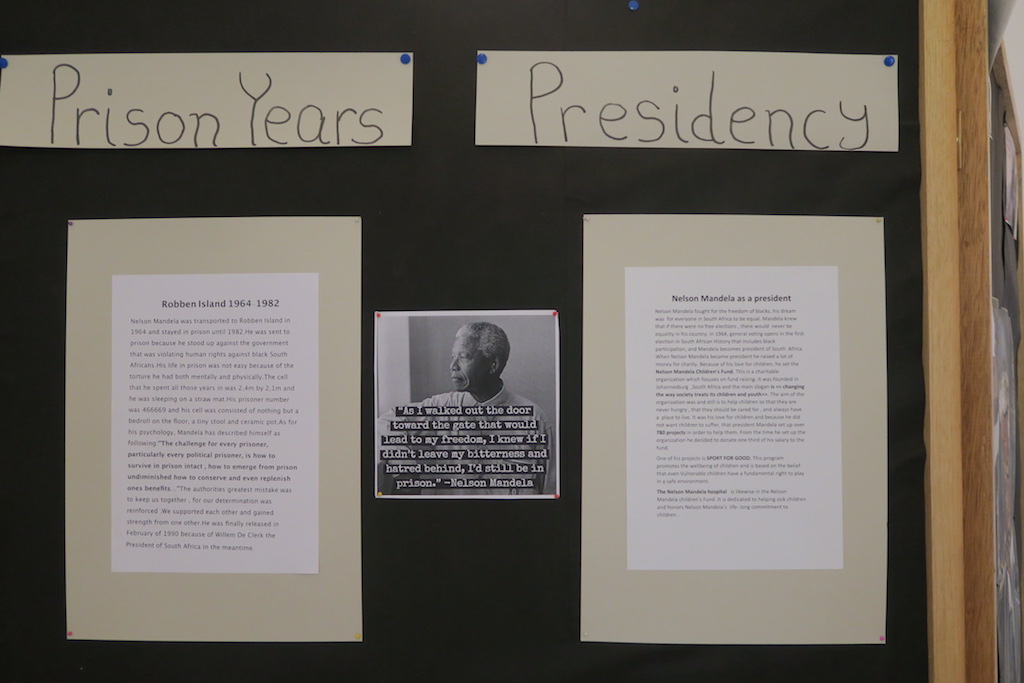 Prison Years
Presidency
Robben Island 1964-1982
Nelson Mandela was transported to Robben Island in
1964 and stayed in prison until 1982.He was sent to
prison because he stood up against the government
that was violating human rights against black South
Africans.His life in prison was not easy because of the
torture he had both mentally and physically.The cell
that he spent all those years in was 2,4m by 2,1m and
he was sleeping on a straw mat.His prisoner number
was 466669 and his cell was consisted of nothing but a
bedroll on the floor, a tiny stool and ceramic pot.As for
his psychology, Mandela has described himself as
following:"The challenge for every prisoner,
particularly every political prisoner, is how to
survive in prison intact , how to emerge from prison
undiminished how to conserve and even replenish
ones benefits..."The authorities greatest mistake was
to keep us together , for our determination was
reinforced .We supported each other and gained
strength from one other.He was finally released in
February of 1990 because of Willem De Clerk the
President of South Africa in the meantime.
"As I walked out the door
toward the gate that would
lead to my freedom, I knew if I
didn't leave my bitterness and
hatred behind, I'd still be in
prison." -Nelson Mandela
Nelson Mandela as a president
Nelson Mandela fought for the freedom of blacks, his dream
was for everyone in South Africa to be equal. Mandela knew
that if there were no free elections , there would never be
equality in his country. In 1964, general voting opens in the first
election in South African History that includes black
participation, and Mandela becomes president of South Africa.
When Nelson Mandela became president he raised a lot of
money for charity. Because of his love for children, he set the
Nelson Mandela Children's Fund. This is a charitable
organization which focuses on fund raising. It was founded in
Johannesburg , South Africa and the main slogan is «« changing
the way society treats its children and youth»». The aim of the
organization was and still is to help children so that they are
never hungry , that they should be cared for , and always have
a place to live. It was his love for children and because he did
not want children to suffer, that president Mandela set up over
780 projects in order to help them. From the time he set up the
organization he decided to donate one third of his salary to the
fund.
One of his projects is SPORT FOR GOOD. This program
promotes the wellbeing of children and is based on the belief
that even Vulnerable children have a fundamental right to play
in a safe environment.
The Nelson Mandela hospital is likewise in the Nelson
Mandela children's Fund. It is dedicated to helping sick children
and honors Nelson Mandela's life- long commitment to
children.